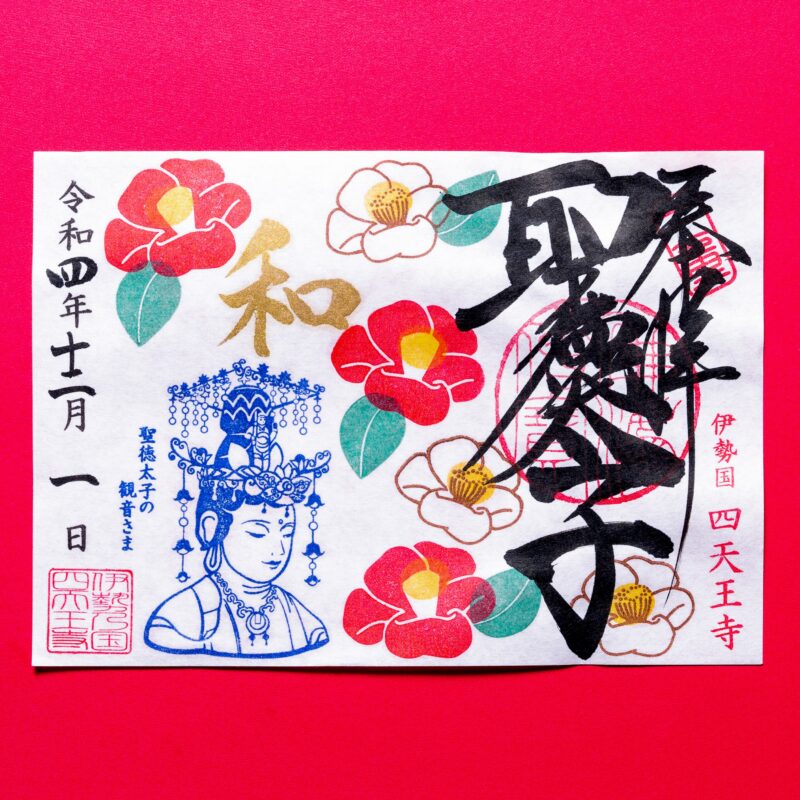 奉拝
聖徳太子
伊勢国 四天王寺
和
聖徳太子の
観音さま
令和四年十二月 一 日
伊勢国
四天王寺